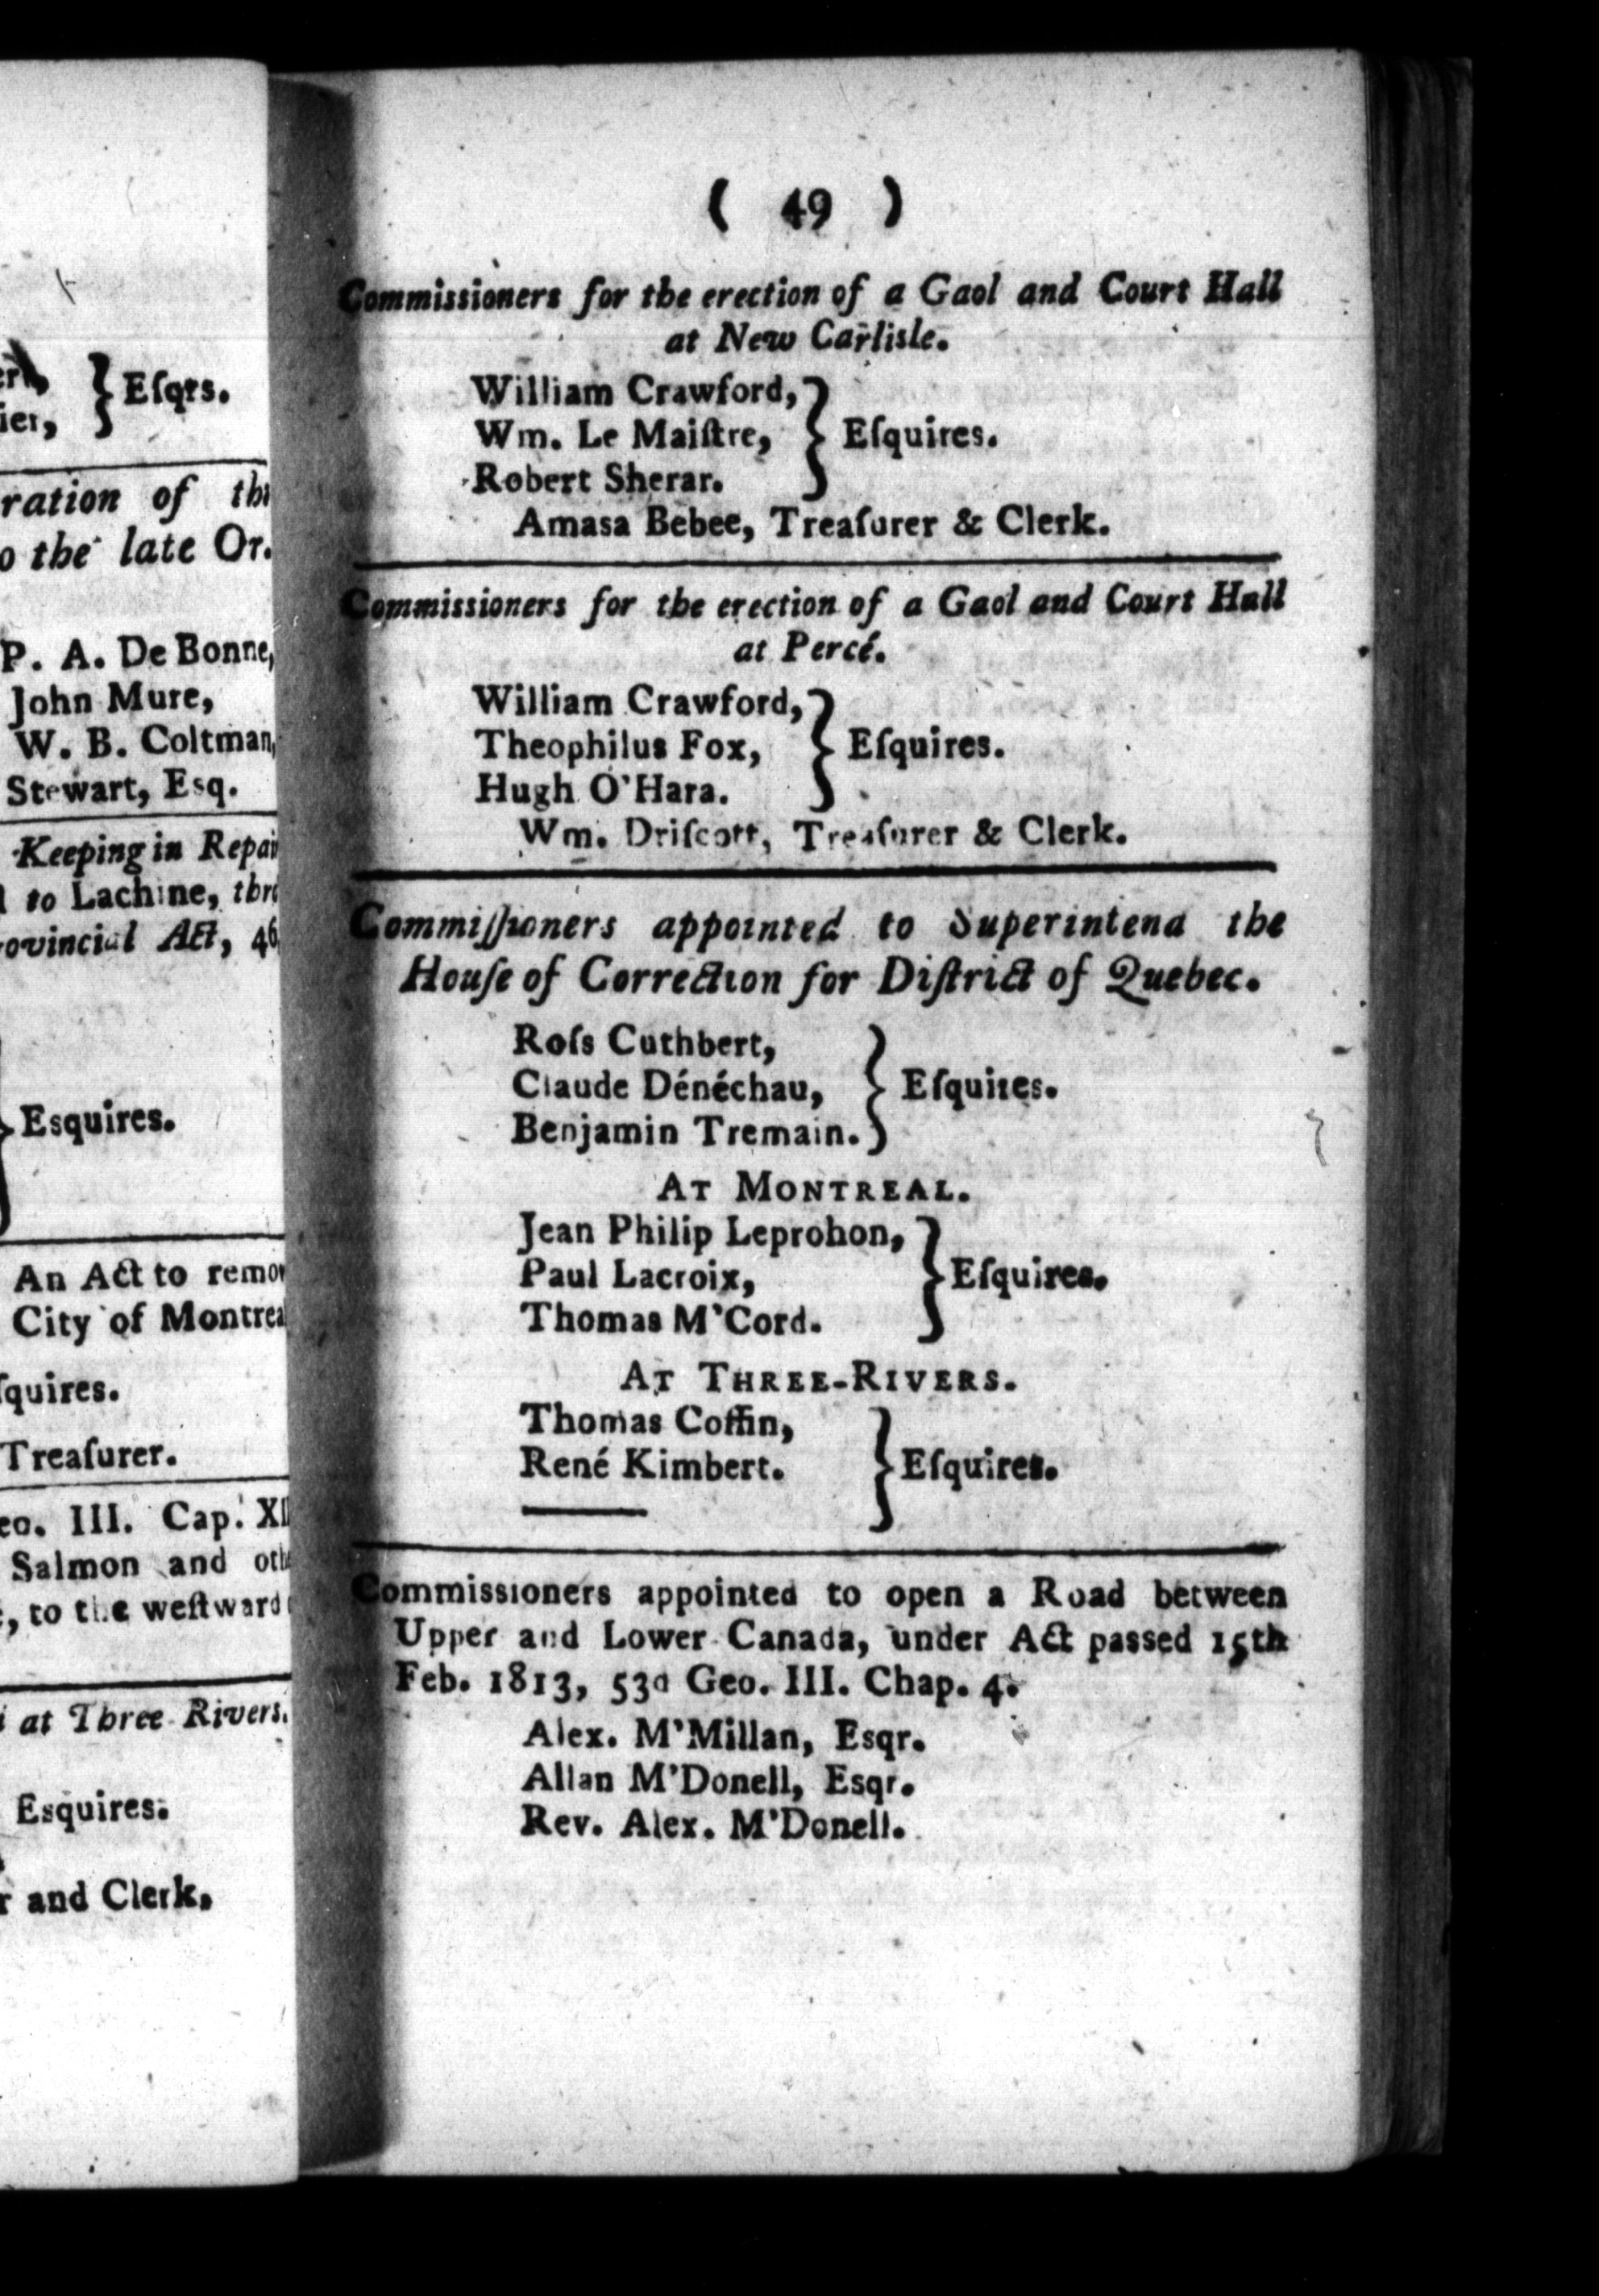 Esqrs.
ier,
ration of the
o the late Or.
P. A. De Bonne,
John Mure,
W. B. Coltman,
Stewart, Esq.
Keeping in Repair
to Lachine, thro
rovincial Act, 46
Esquires.
An Act to remov
City of Montreal
ſquires.
Treaſurer.
eo. III. Cap. XII
Salmon and oth
, to the weſtward
at Three Rivers.
Esquires.
r and Clerk,
( 49 )
Commissioners for the erection of a Gaol and Court Hall
at New Carlisle.
William Crawford,
Wm. Le Maiſtre, } Eſquires.
Robert Sherar.
Amasa Bebee, Treaſurer & Clerk.
Commissioners for the erection of a Gaol and Court Hall
at Percé.
William Crawford,
Theophilus Fox, } Eſquires.
Hugh O'Hara.
Wm. Driſcott, Treaſurer & Clerk.
Commiſſioners appointed to Superintend the
Houſe of Correction for Diſtrict of Quebec.
Roſs Cuthbert,
Claude Dénéchau, } Eſquires.
Benjamin Tremain.
AT MONTREAL.
Jean Philip Leprohon,
Paul Lacroix, } Eſquires.
Thomas M'Cord.
AT THREE-RIVERS.
Thomas Coffin,
René Kimbert. } Eſquires.
Commissioners appointed to open a Road between
Upper and Lower Canada, under Act passed 15th
Feb. 1813, 53d Geo. III. Chap. 4.
Alex. M'Millan, Esqr.
Allan M'Donell, Esqr.
Rev. Alex. M'Donell.